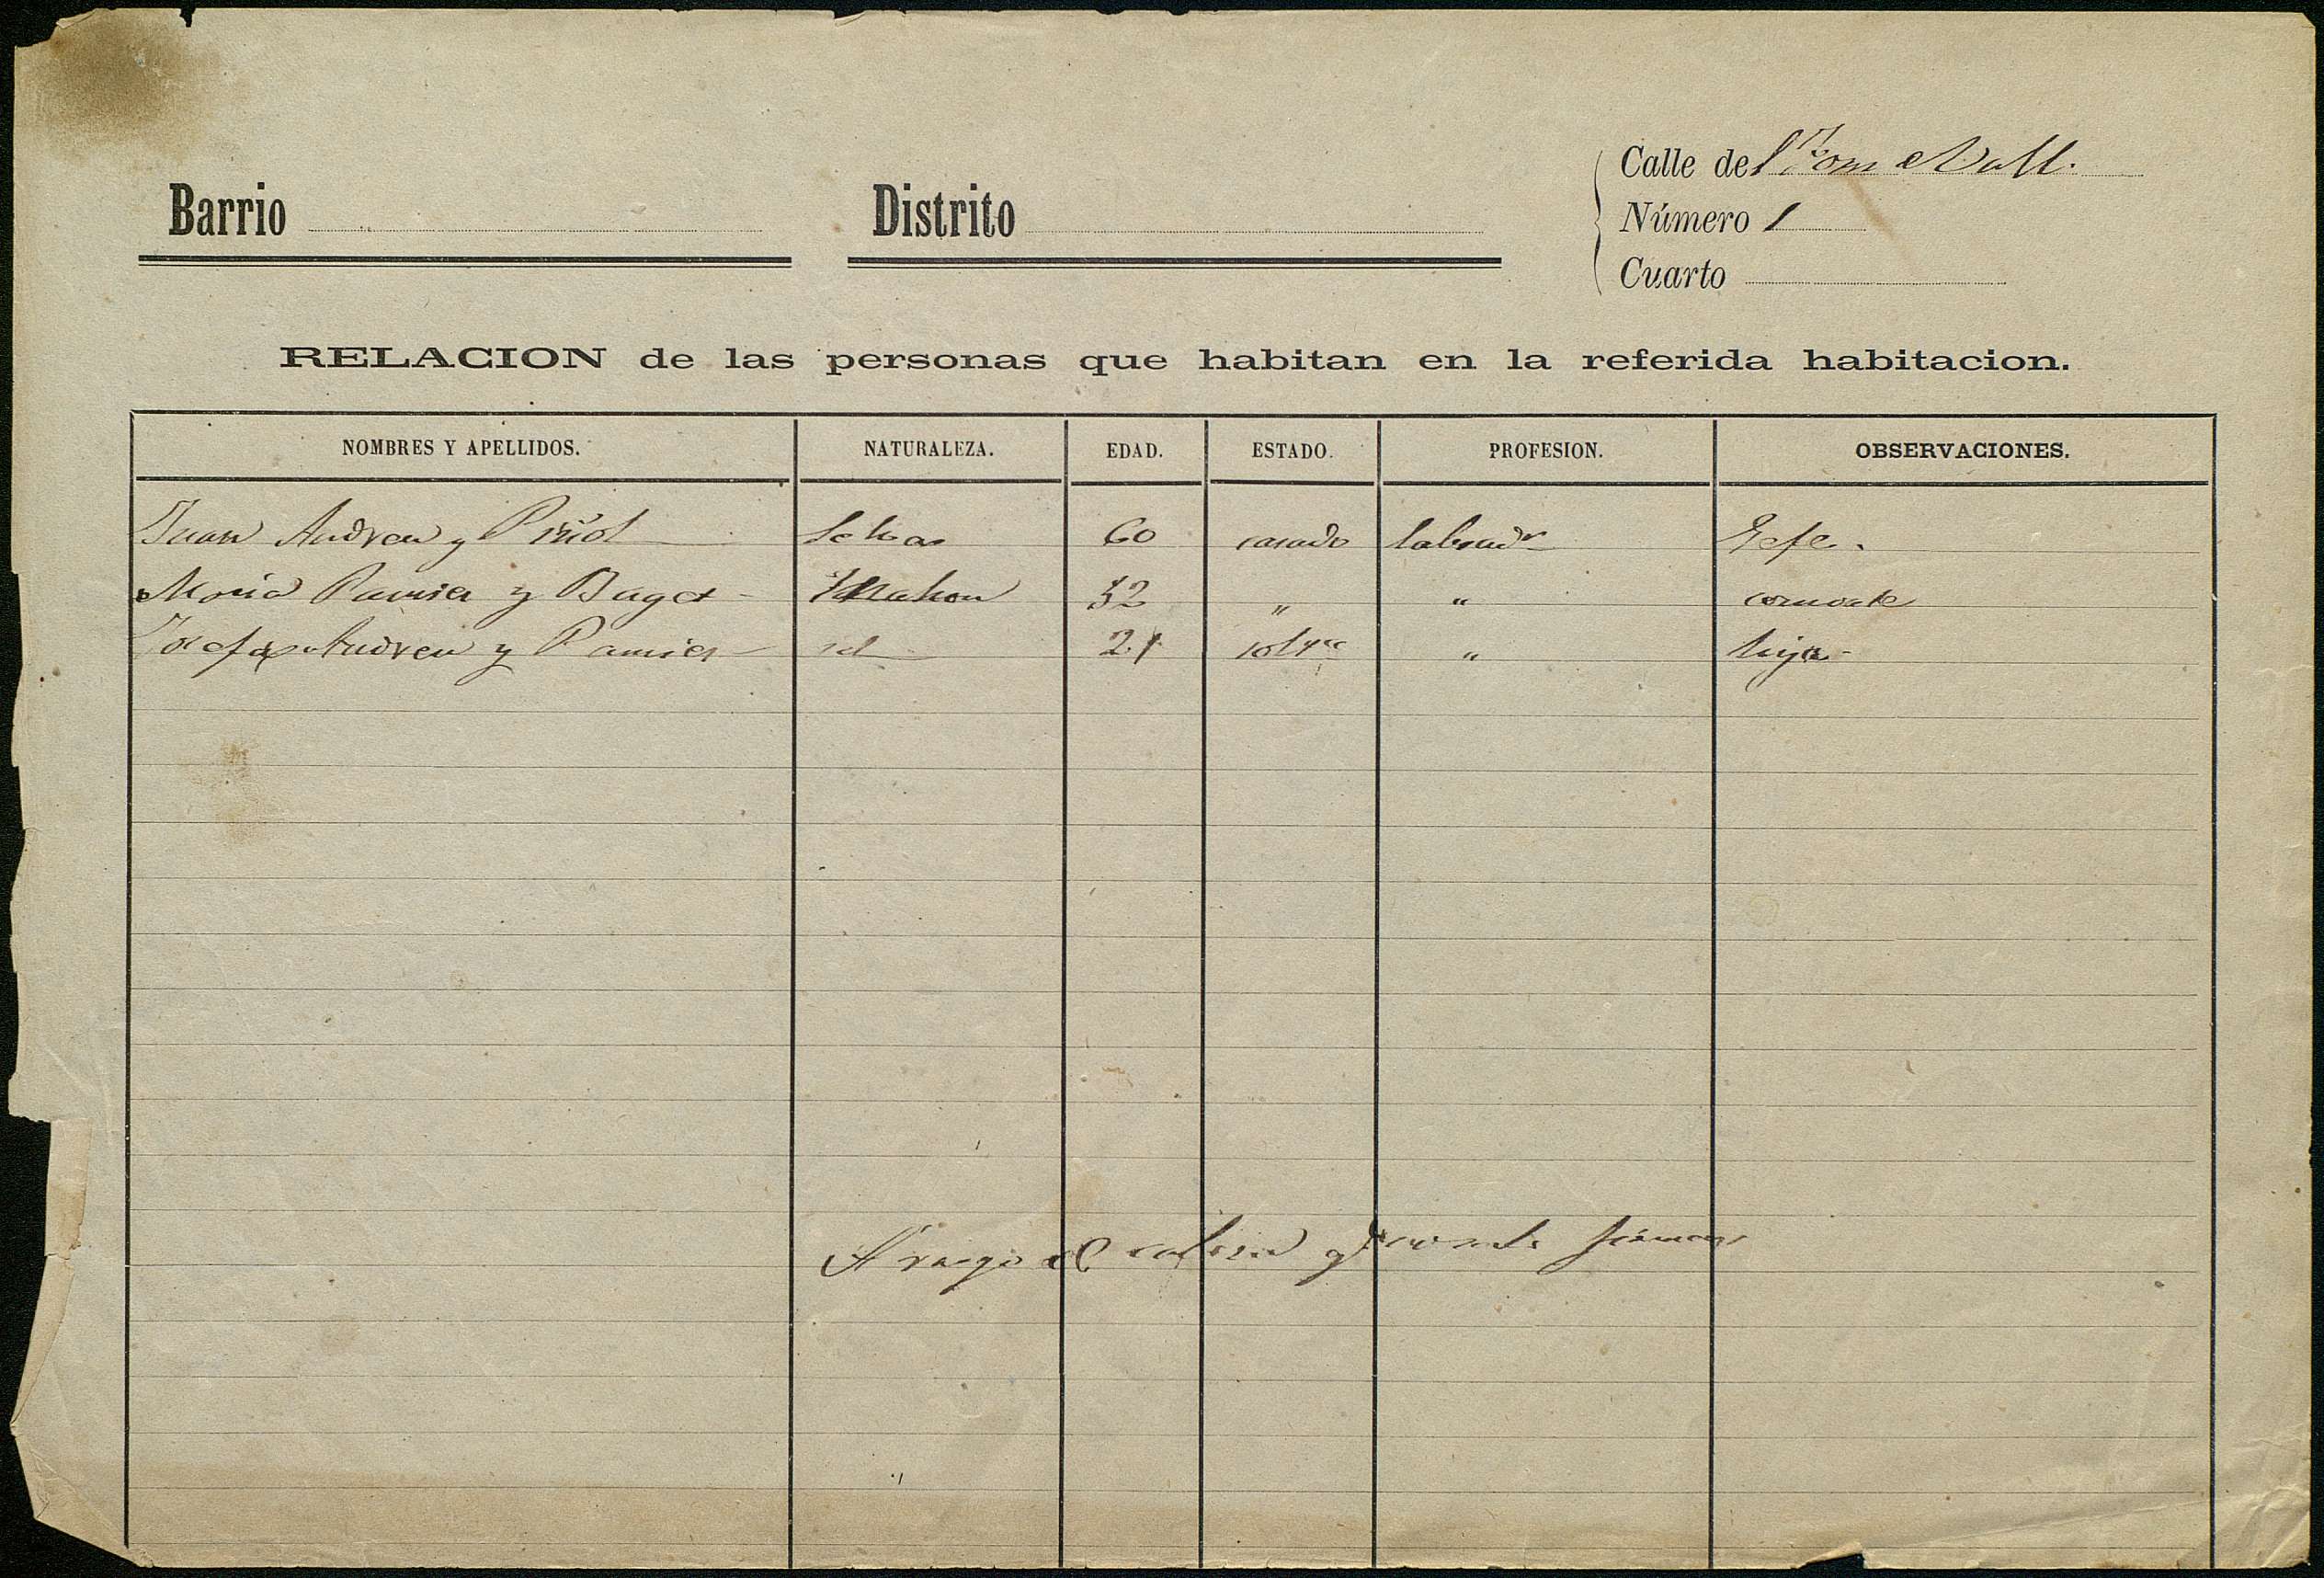 Calle del Fom Vall.
Barrio
Distrito
Número 1
Cuarto
RELACION de las personas que habitan en la referida habitacion.
NOMBRES Y APELLIDOS. NATURALEZA. EDAD. ESTADO. PROFESION. OBSERVACIONES.
Juan Andreu y Piñol 60 casado labrador Gefe.
Maria Pamies y Baget Mahon 52 " " consorte
Josefa Andreu y Pamies id 21 solt.ra " hija
A ruego el cabeza q. no sabe firmar